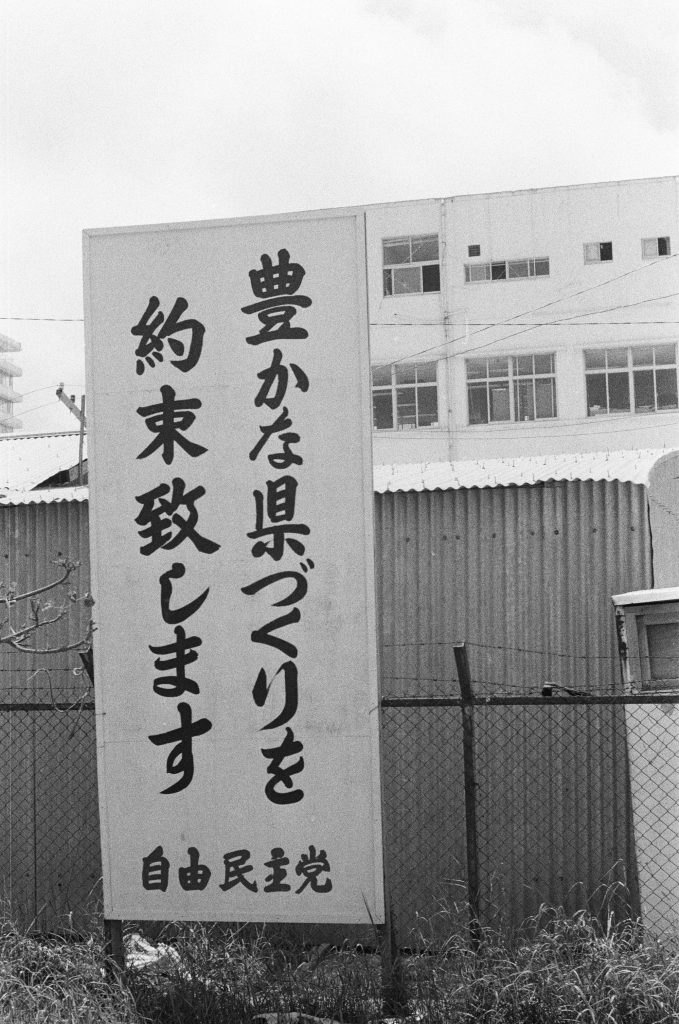 豊かな県づくりを
約束致します
自由民主党